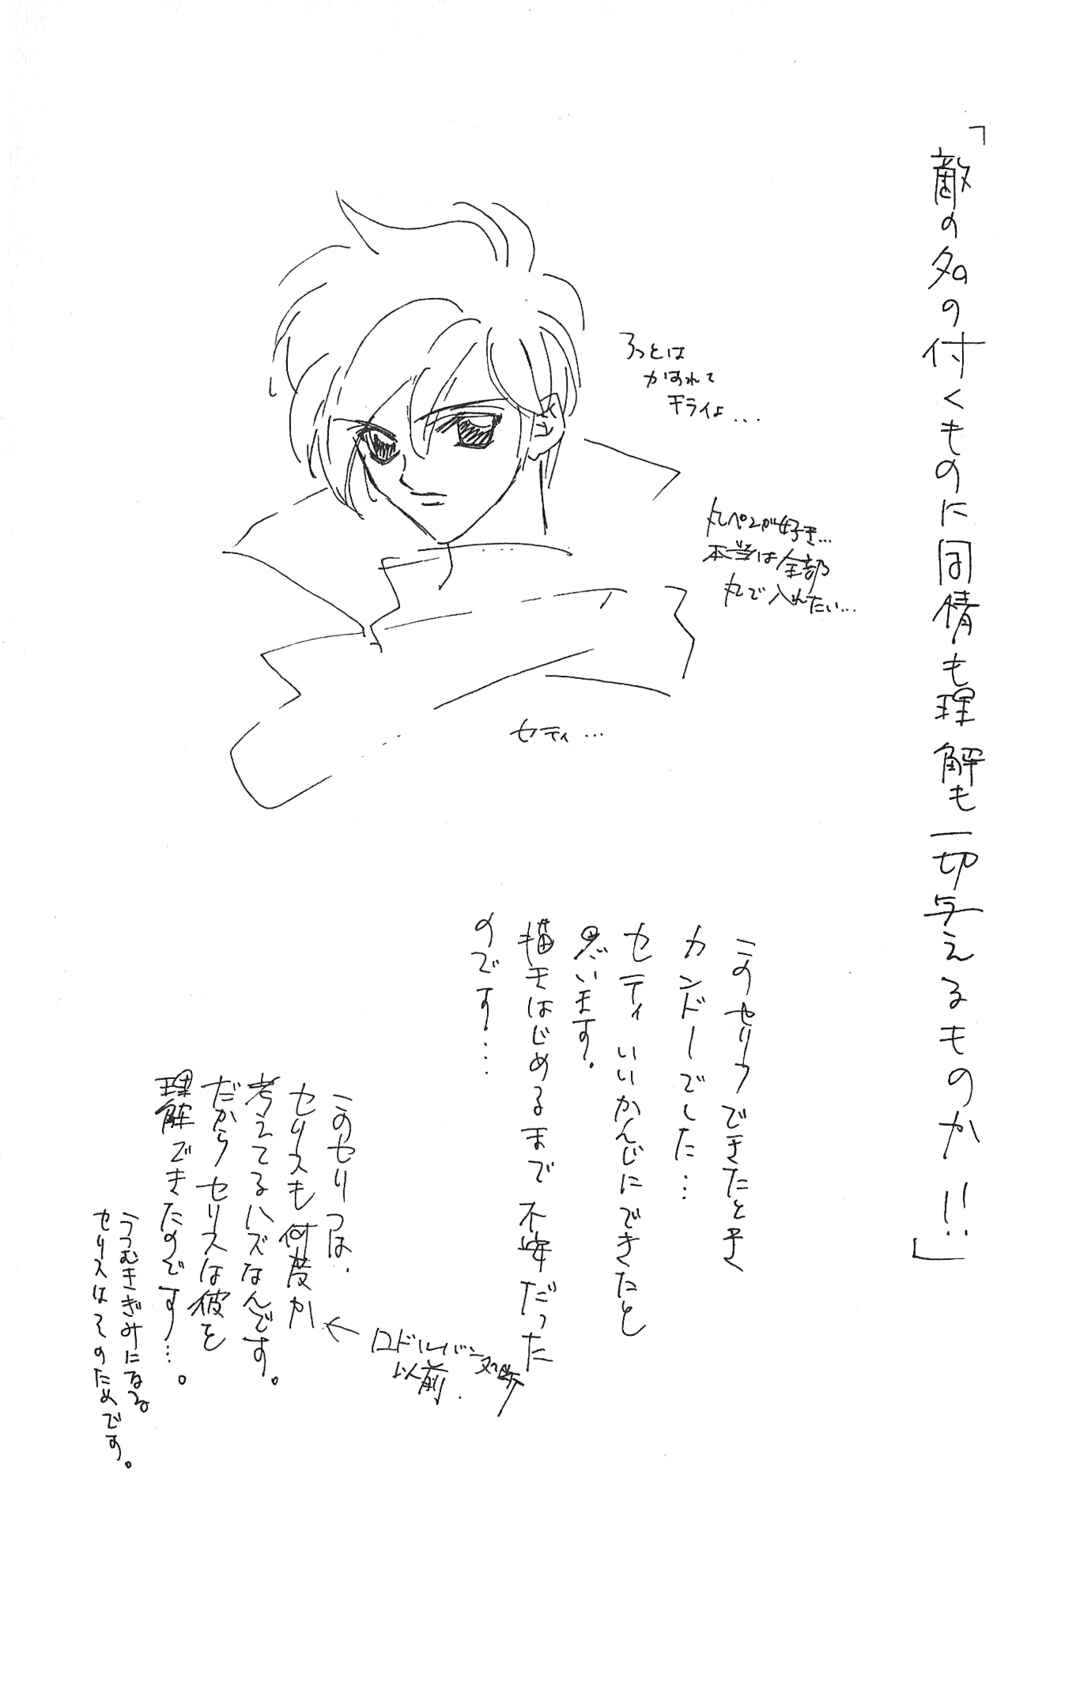 「敵の名の付くものに同情も理解も一切与えるものか!!」
ろっとは
かすれて
キライよ...
丸ペンが好き...
本当は全部
丸で入れたい...
セティ...
このセリフできたとき
カンドーでした...
セティいいかんじにできたと
思います。
描きはじめるまで不安だった
のです...
このセリフは、
セリスも何度か
考えてるハズなんです。
だからセリスは彼を
理解できたのです...。
うつむきぎみになる
セリスはそのためです。
←
以前.